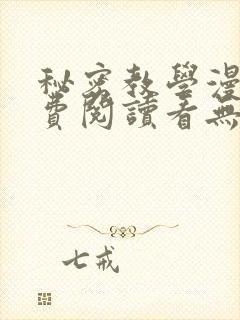 秘密教學漫
費閱讀看無
七戒